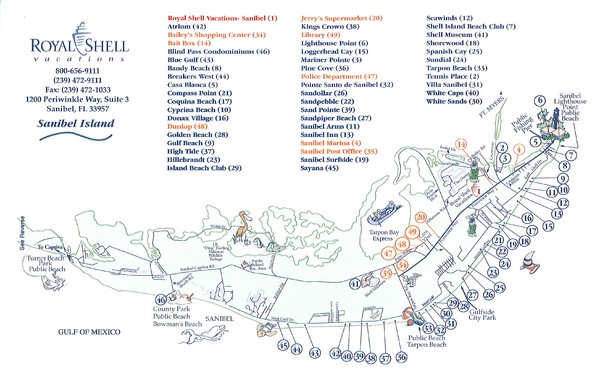 ROYAL SHELL
vacations
800-656-9111
(239) 472-9111
Fax: (239) 472-1033
1200 Periwinkle Way, Suite 3
Sanibel, FL 33957
Sanibel Island
Royal Shell Vacations- Sanibel (1)
Atrium (42)
Bailey's Shopping Center (34)
Bait Box (14)
Blind Pass Condominiums (46)
Blue Gulf (43)
Bandy Beach (8)
Breakers West (44)
Casa Blanca (5)
Compass Point (21)
Coquina Beach (17)
Cyprina Beach (10)
Donax Village (16)
Dunlop (48)
Golden Beach (28)
Gulf Beach (9)
High Tide (37)
Hillebrandt (23)
Island Beach Club (29)
Jerry's Supermarket (20)
Kings Crown (38)
Library (49)
Lighthouse Point (6)
Loggerhead Cay (15)
Mariner Pointe (3)
Pine Cove (36)
Police Department (47)
Pointe Santo de Sanibel (32)
Sandollar (26)
Sandpebble (22)
Sand Pointe (39)
Sandpiper Beach (27)
Sanibel Arms (11)
Sanibel Inn (13)
Sanibel Marina (4)
Sanibel Post Office (35)
Sanibel Surfside (19)
Sayana (45)
Seawinds (12)
Shell Island Beach Club (7)
Shell Museum (41)
Shorewood (18)
Spanish Cay (25)
Sundial (24)
Tarpon Beach (33)
Tennis Place (2)
Villa Sanibel (31)
White Caps (40)
White Sands (30)
FT. MYERS
Public
Fishing
Pier
6
Sanibel
Lighthouse
Point
Public
Beach
14
2
3
4
5
7
8
9
10
11
12
13
15
16
17
18
19
20
21
22
23
24
25
26
27
28
29
30
31
32
33
34
35
36
37
38
39
40
41
42
43
44
45
46
47
48
49
1
Royal Shell
Vacations
Tarpon Bay
Express
Gulfside
City Park
Public Beach
Tarpon Beach
See Reverse
To Captiva
Turner Beach
Park
Public Beach
County Park
Public Beach
Bowman's Beach
SANIBEL
GULF OF MEXICO
J.N.
"Ding" Darling
National
Wildlife
Refuge
Sanibel Captiva Rd.
West Gulf Dr.